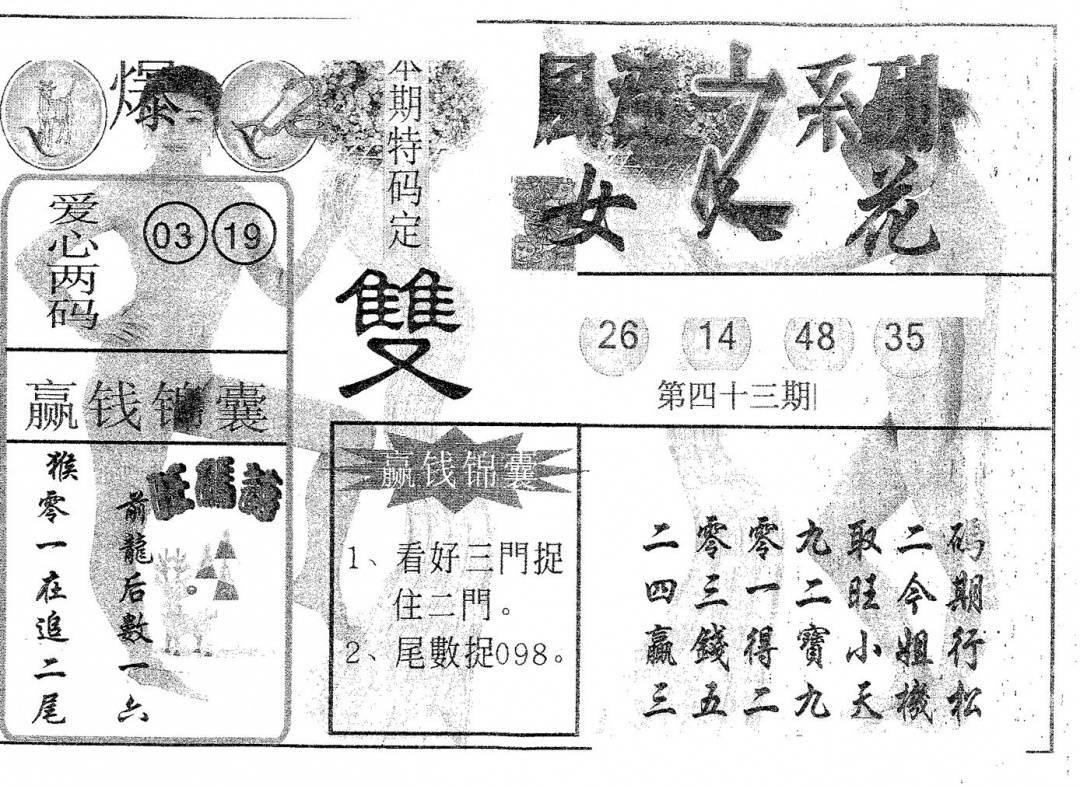 爆
爱心两码
03 19
赢钱锦囊
猴零一在追二尾
前龍后数一六
旺碼詩
本期特码定
雙
赢钱锦囊
1、看好三門捉
住二門。
2、尾數捉098。
系列
女人花
26 14 48 35
第四十三期
二零零九取二码
四三一二旺今期
赢錢得寶小姐行
三五二九天機松